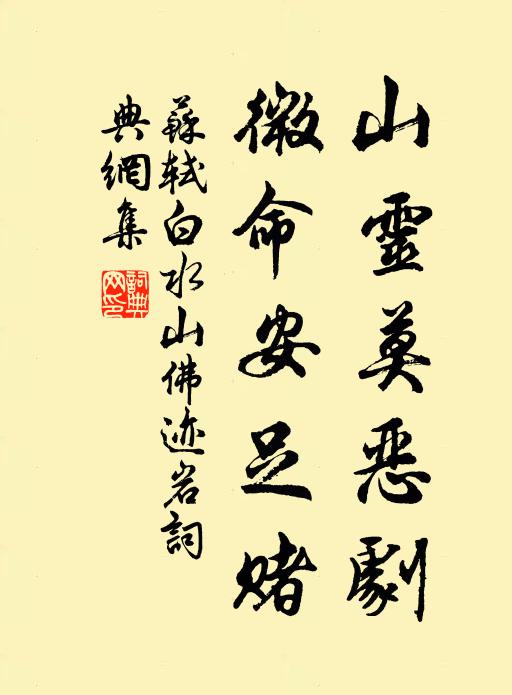 山靈莫惡劇
微命安足賭
蘇軾白水山佛迹岩詞
典網集
詞典網印